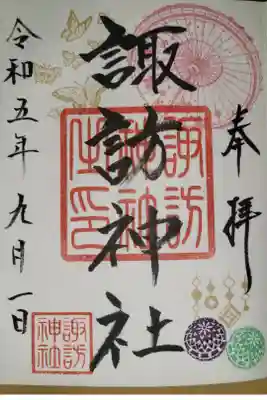 奉拝
諏訪神社
諏訪
神社
之印
令和五年九月一日
諏訪
神社